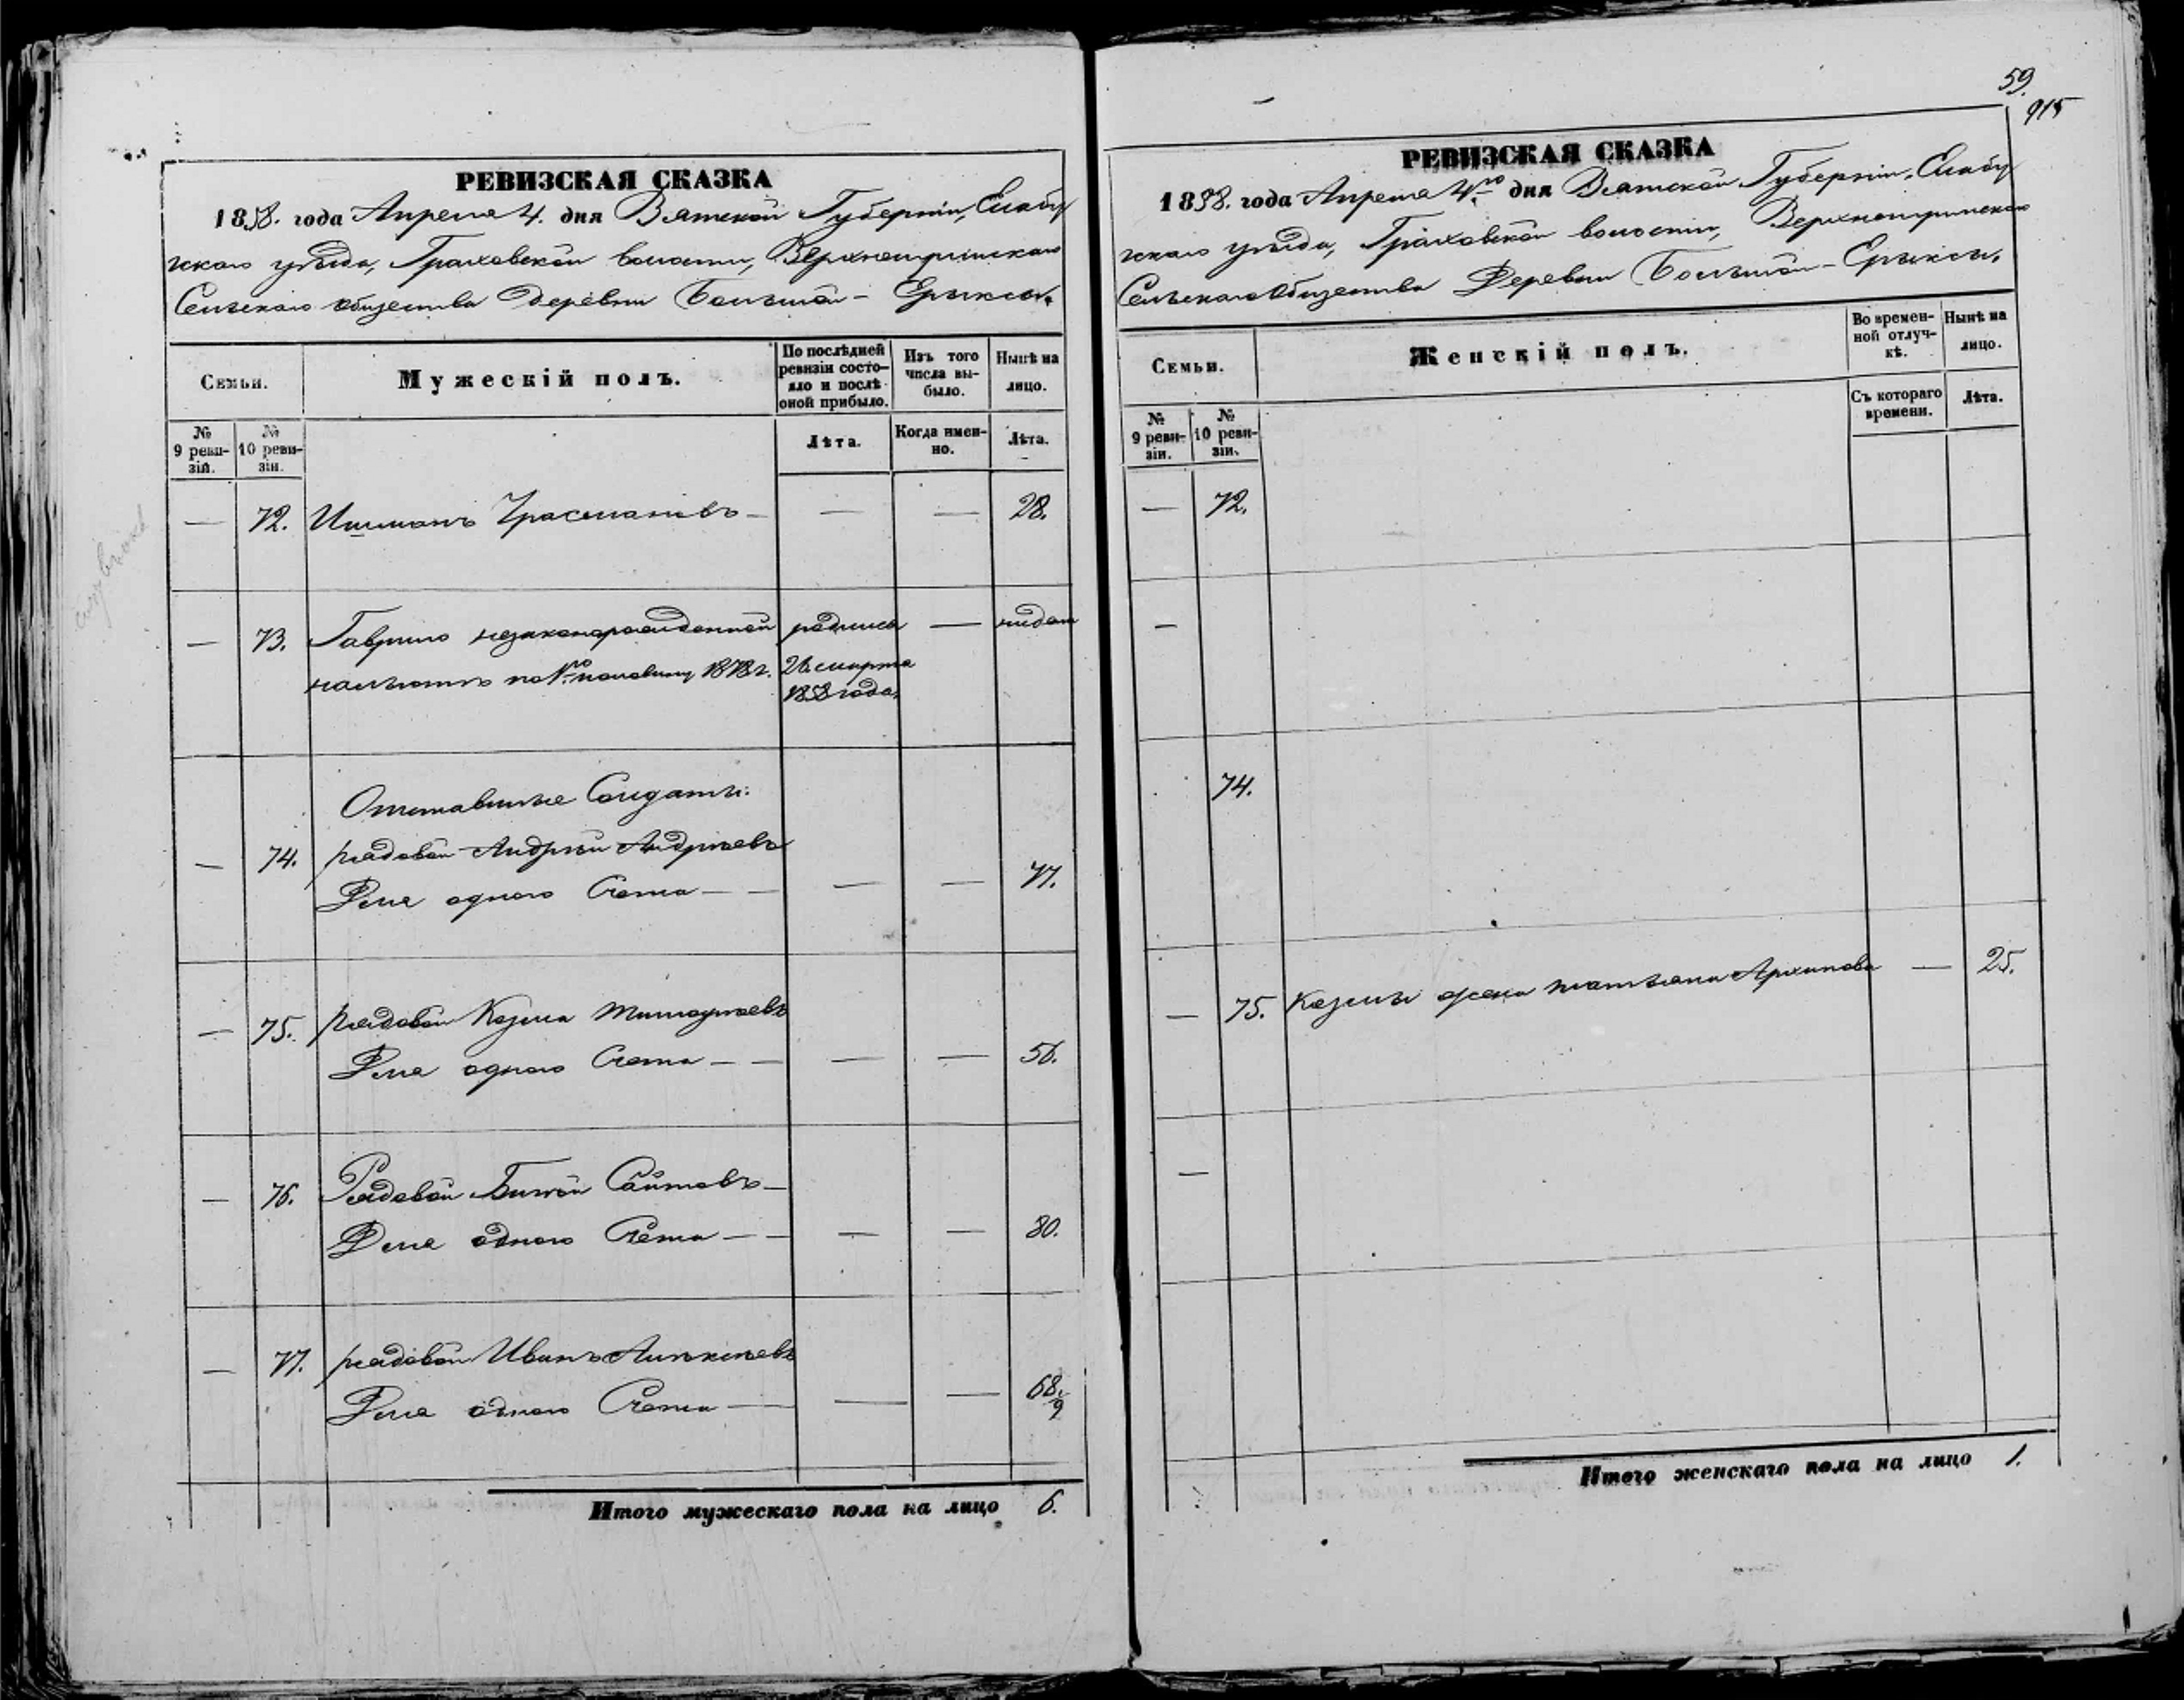 РЕВИЗСКАЯ СКАЗКА
1858. года Апреля 4. дня Вятской Губерніи, Елабу
жскаго уѣзда, Граховской волости, Верхнетыжинскаго
Сельскаго общества Деревни Большой - Ерыксы.
Семьи.
Мужескій полъ.
По послѣдней ревизіи состояло и послѣ оной прибыло.
Изъ того числа выбыло.
Нынѣ на лицо.
№ 9 ревизій.
№ 10 ревизіи.
Лѣта.
Когда именно.
Лѣта.
— 72. — — 28.
— 73. Гаврило незаконорожденной родился — нидом
на льготѣ по 1ю половину 1878 г. 26 марта
1858 года.
Отставные Солдаты:
— 74. рядовой Андрей Андреевъ
Для одного Счета — — — — 77.
— 75. рядовой Козма Тимофѣевъ
Для одного Счета — — — — 56.
— 76. Рядовой Саитовъ —
Для одного Счета — — — — 80.
— 77. рядовой Иванъ Алексѣевъ
Для одного Счета — — — 68.
9
Итого мужескаго пола на лицо 6.
59.
915
РЕВИЗСКАЯ СКАЗКА
1858. года Апреля 4го дня Вятской Губерніи, Елабу
жскаго уѣзда, Граховской волости,
Сельскаго Общества Деревни Большой - Ерыксы.
Семьи.
Женскій полъ.
Во временной отлучкѣ.
Нынѣ на лицо.
№ 9 ревизіи.
№ 10 ревизіи.
Съ котораго времени.
Лѣта.
— 72.
—
74.
— 75. Козмы жена татьяна Архипова — 25.
—
Итого женскаго пола на лицо 1.